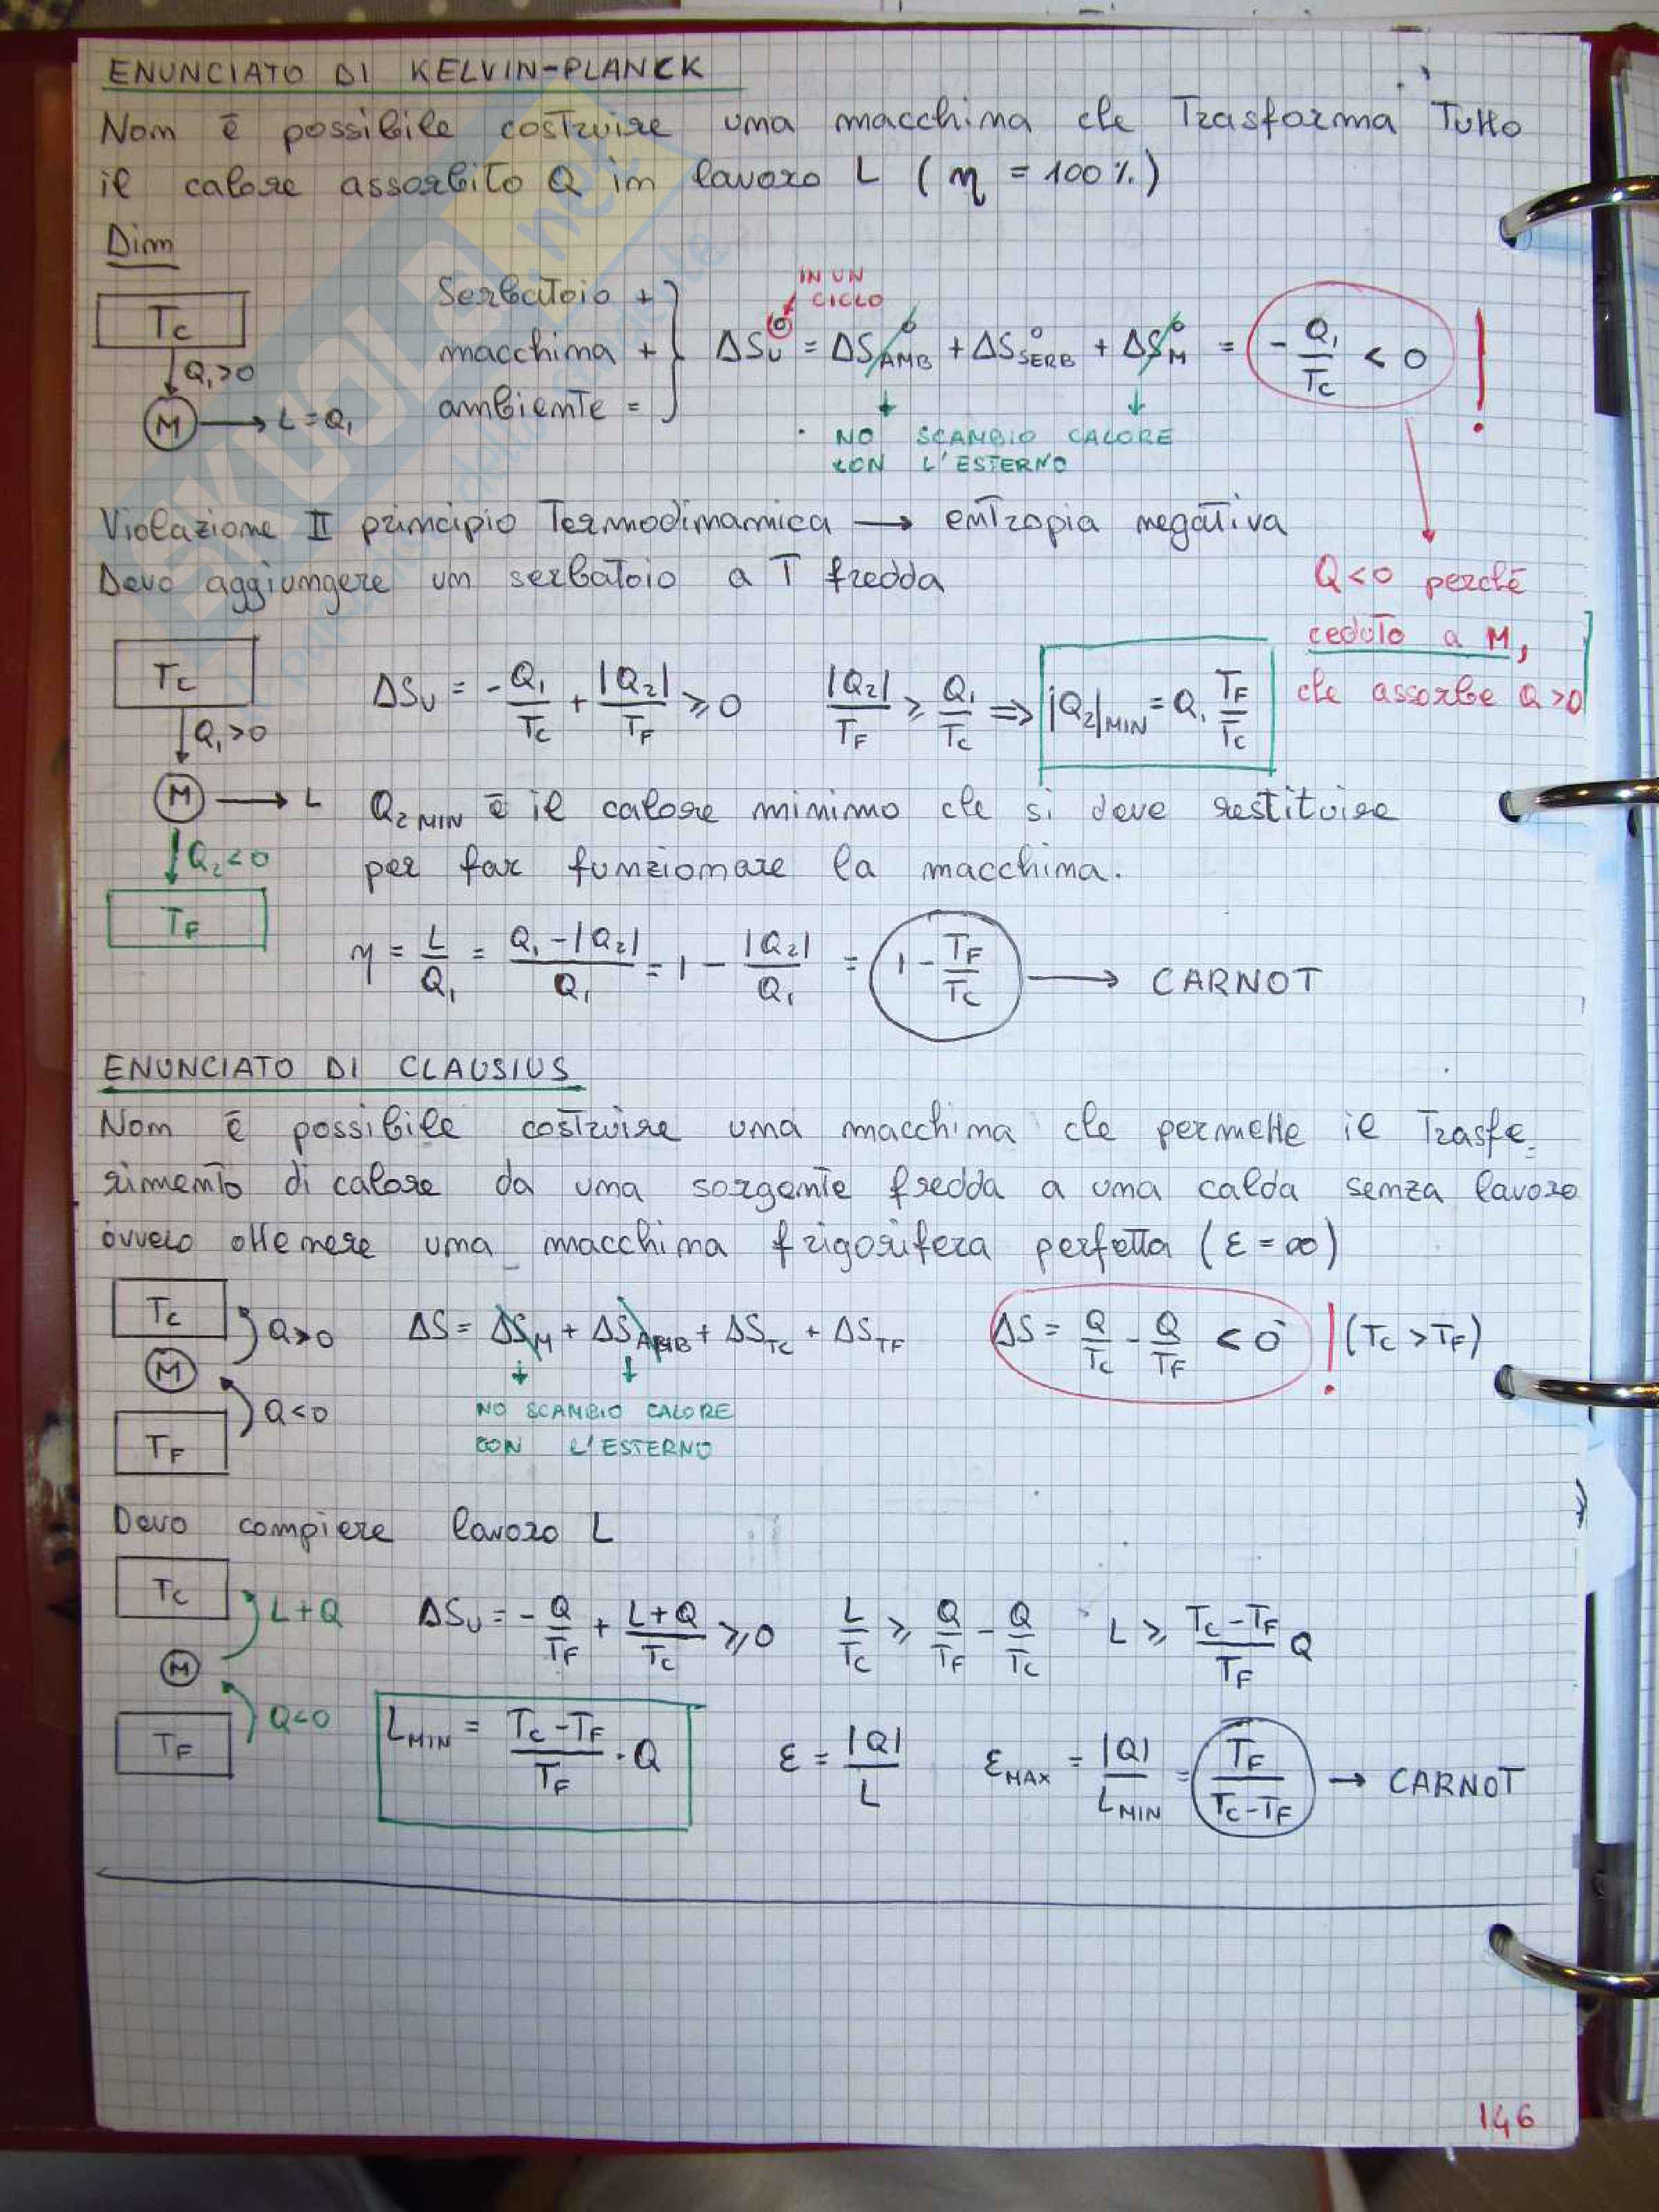 ENUNCIATO DI KELVIN-PLANCK
Non è possibile costruire una macchina che Trasforma Tutto
il calore assorbito Q in lavoro L (η = 100%)
Dim
IN UN
CICLO
Tc
Q₁>0
M → L = Q₁
Serbatoio +
macchina +
ambiente =
ΔSᵤ° = ΔS_AMB° + ΔS_SERB° + ΔS_M° = - Q₁/Tc < 0 !
NO SCAMBIO CALORE
CON L'ESTERNO
Violazione II principio Termodinamica → entropia negativa
Devo aggiungere un serbatoio a T fredda
Q<0 perché
ceduto a M,
che assorbe Q>0
Tc
Q₁>0
M → L
Q₂<0
TF
ΔSᵤ = -Q₁/Tc + |Q₂|/TF ≥ 0 |Q₂|/TF ≥ Q₁/Tc ⇒ |Q₂|MIN = Q₁ TF/Tc
Q₂ MIN è il calore minimo che si deve restituire
per far funzionare la macchina.
η = L/Q₁ = (Q₁ - |Q₂|)/Q₁ = 1 - |Q₂|/Q₁ = 1 - TF/Tc → CARNOT
ENUNCIATO DI CLAUSIUS
Non è possibile costruire una macchina che permette il Trasfe-
rimento di calore da una sorgente fredda a una calda senza lavoro
ovvero ottenere una macchina frigorifera perfetta (ε = ∞)
Tc
Q>0
M
Q<0
TF
ΔS = ΔS_M + ΔS_AMB + ΔS_TC + ΔS_TF ΔS = Q/Tc - Q/TF < 0 ! (Tc > TF)
NO SCAMBIO CALORE
CON L'ESTERNO
Devo compiere lavoro L
Tc
L+Q
M
Q<0
TF
ΔSᵤ = - Q/TF + (L+Q)/Tc ≥ 0 L/Tc ≥ Q/TF - Q/Tc L ≥ (Tc - TF)/TF Q
L MIN = (Tc - TF)/TF · Q ε = |Q|/L ε MAX = |Q|/L MIN = TF/(Tc - TF) → CARNOT
146